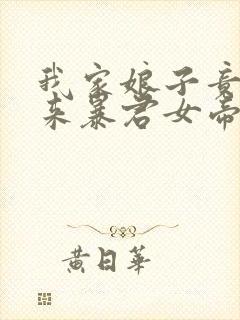 我家娘子竟
来暴君女帝
黄日華